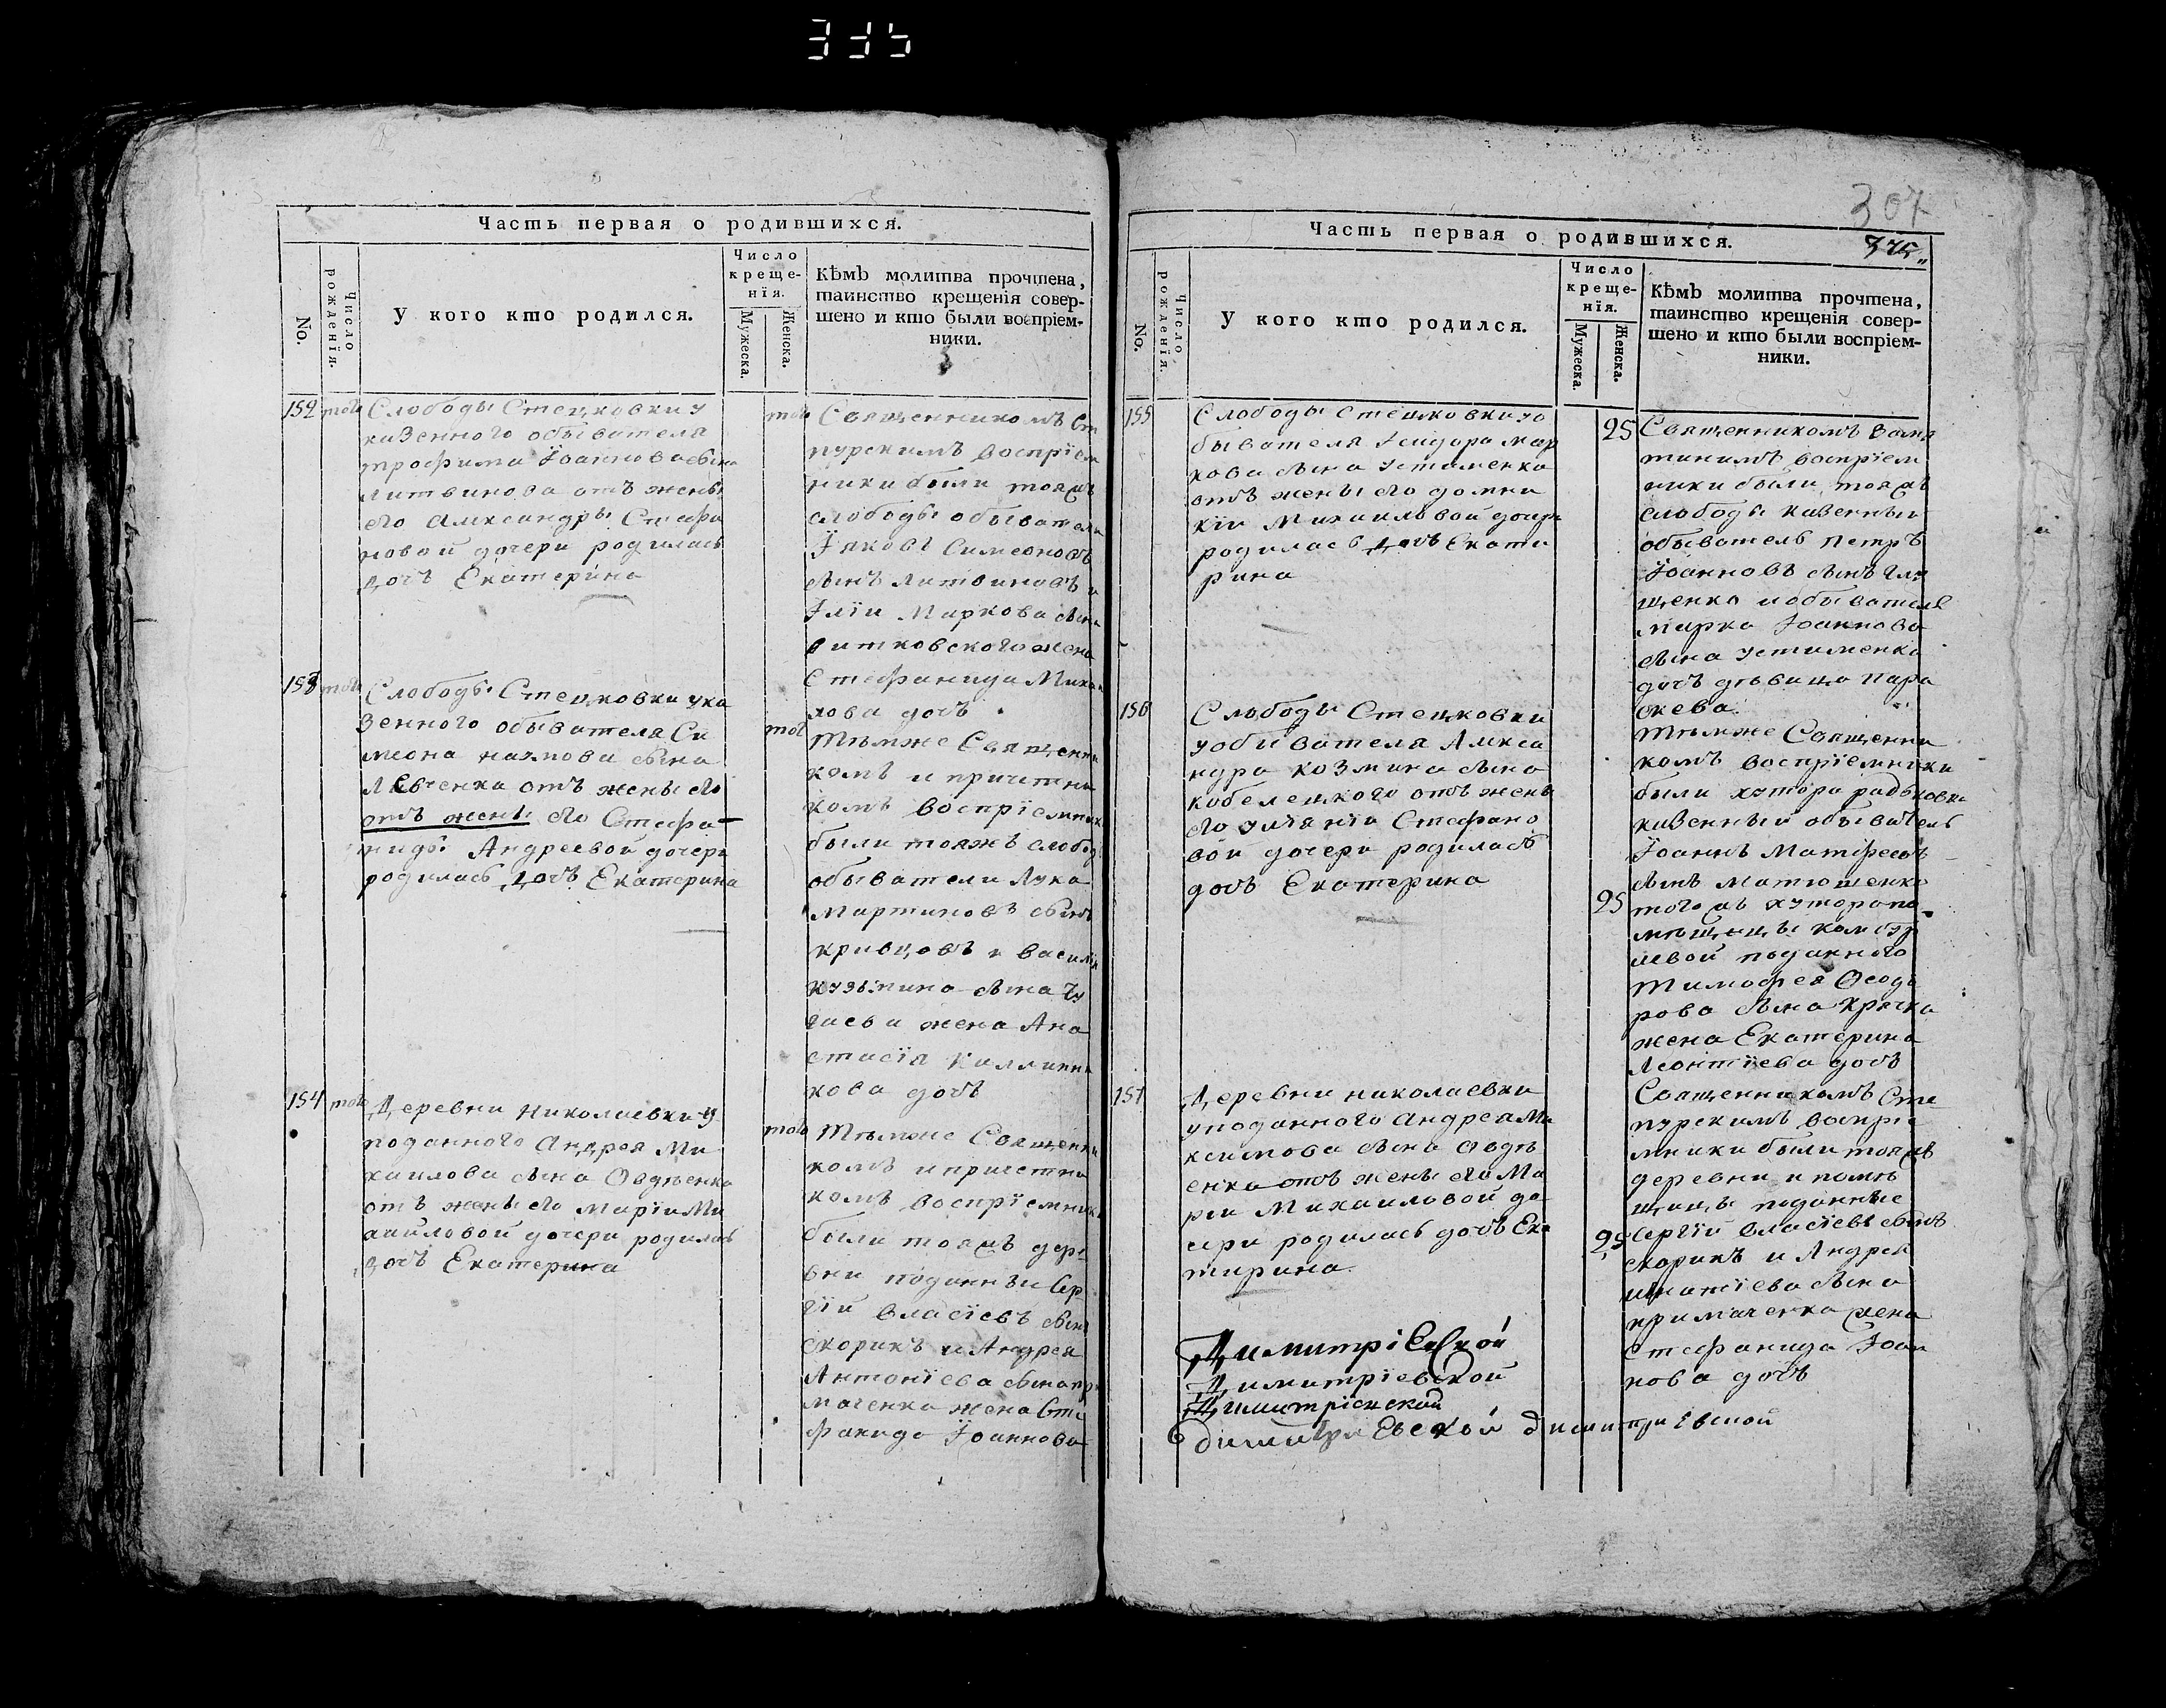 335
Часть первая о родившихся.
No.
Число рожденія.
У кого кто родился.
Число
креще-
нїя.
Мужеска.
Женска.
Кѣмъ молитва прочтена,
таинство крещенія совер-
шено и кто были воспріем-
ники.
152
Слободы Стецковки у
казенного обывателя
трофима Іоаннова сына
литвинова отъ жены
его Александры Стефа
новой дочери родилась
дочь Екатерина
Священникомъ Ст
пурскимъ воспрїем
ники были тояжъ
слободы обыватели
Іаковъ Симеоновъ
сынъ литвиновъ и
Ілїи Маркова сына
витковского жена
Стефанида Михаи
лова дочь
153
Слободы Стецковки ука
зенного обывателя Си
меона наумова сына
Левченка отъ жены его
отъ жены его Стефа
ниды Андреевой дочери
родилась дочь Екатерина
Тѣмже Священни
комъ и причетни
комъ воспрїемники
были тояжъ слобод
обыватели Лука
Мартиновъ сынъ
кривцовъ и василїя
кузмина сына
жена Ана
стасїя Каллинни
кова дочь
154
Деревни николаевки у
поданного Андрея Ми
хаилова сына Овдѣенка
отъ жены его Марїи Ми
хаиловой дочери родилась
дочь Екатерина
Тѣмже Священни
комъ и причетни
комъ воспрїемники
были тояжъ дере
вни поданные Сер
гїй власїевъ сынъ
скорикъ и Андрея
Антонїева сына при
маченка жена Сте
фанида Іоаннова
307
375
Часть первая о родившихся.
No.
Число рожденїя.
У кого кто родился.
Число
креще-
нїя.
Мужеска.
Женска.
Кѣмъ молитва прочтена,
таинство крещенія совер-
шено и кто были воспріем-
ники.
155
Слободы Стецковки уо
бывателя Ісидора мар
кова сына устименка
отъ жены его домни
кїи Михаиловой дочери
родилась дочь Екате
рина
25
Священникомъ Замя
тинимъ воспрїем
ники были тояжъ
слободы казенный
обыватель петръ
Іоанновъ сынъ
щенко и обывателя
марка Іоаннова
сына устименка
дочь дѣвица пара
скева
156
Слободы Стецковки
у обивателя Алекса
ндра козмина сына
кобелецкого отъ жены
его улїанїи Стефано
вой дочери родилась
дочь Екатерина
25
Тѣмже Священни
комъ воспрїемники
были хутора радьковки
казенный обыватель
Іоаннъ Матфеевъ
сынъ матюшенко
тогожъ хутора по
мѣщицы
левой поданного
Тимофея Ѳеодо
рова сына крячка
жена Екатерина
Леонтїева дочь
157
Деревни николаевки
у поданного Андрея Ма
ксимова сына Авдѣ
енка отъ жены его Ма
рїи Михаиловой до
чери родилась дочь Ека
тирина
25
Священникомъ Сте
пурскимъ воспрїе
мники были тояжъ
деревни и помѣ
щицы поданные
Сергїй власїевъ сынъ
скорикъ и Андрея
игнатїева сына
примаченка жена
Стефанида Іоан
нова дочь
Димитріевской
Димитрїевской
Димитрїевской
димитріевской димитріевской